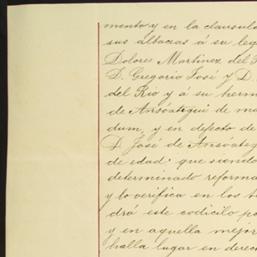 mento y en la clausula
sus albaceas á su leg
Dolores Martinez del
D. Gregorio José y D.
del Rio y á su herm
de Ansóategui de ma
dum, y en defecto de
D. José de Ansoateg
de edad: que siendo
determinado reforma
y lo verifica en los té
drá este codicilo po
y en aquella mejor
halla lugar en derec